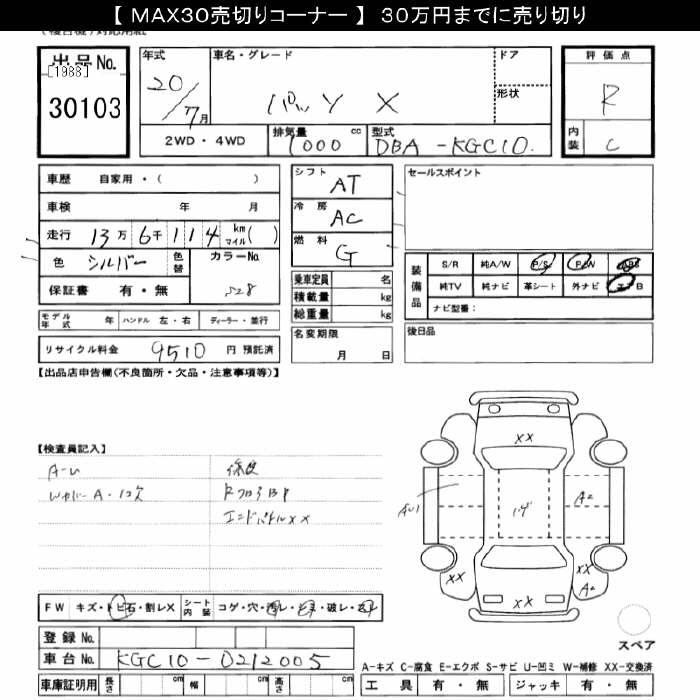 【 MAX30売切りコーナー 】 30万円までに売り切り
出品No.
[1988]
30103
年式
20/7月
車名・グレード
パッソ X
ドア
形状
評価点
R
内装
C
2WD・4WD
排気量
1000 cc
型式
DBA-KGC10
車歴 自家用・( )
車検 年 月
走行 13万6千114 km マイル( )
色 シルバー 色替 カラーNo. S28
保証書 有・無
シフト
AT
冷房
AC
燃料
G
セールスポイント
乗車定員 名
積載量 kg
総重量 kg
装備品
S/R 純A/W P/S P/W ABS
純TV 純ナビ 革シート 外ナビ エアB
ナビ型番：
モデル年式 年 ハンドル 左・右 ディーラー・並行
名変期限
月 日
後日品
リサイクル料金 9510 円 預託済
【出品店申告欄(不良箇所・欠品・注意事項等)】
【検査員記入】
A-U
修復
A・1コ欠
RフロアBP
エンドパネルXX
XX
AU1
A2
XX
XX
A2
XX
FW キズ・トビ石・割レX シート内装 コゲ・穴・汚レ・破レ
スペア
登録No.
車台No. KGC10-0212005
A-キズ C-腐食 E-エクボ S-サビ U-凹ミ W-補修 XX-交換済
車庫証明用 長さ cm 幅 cm 高さ cm
工具 有・無 ジャッキ 有・無